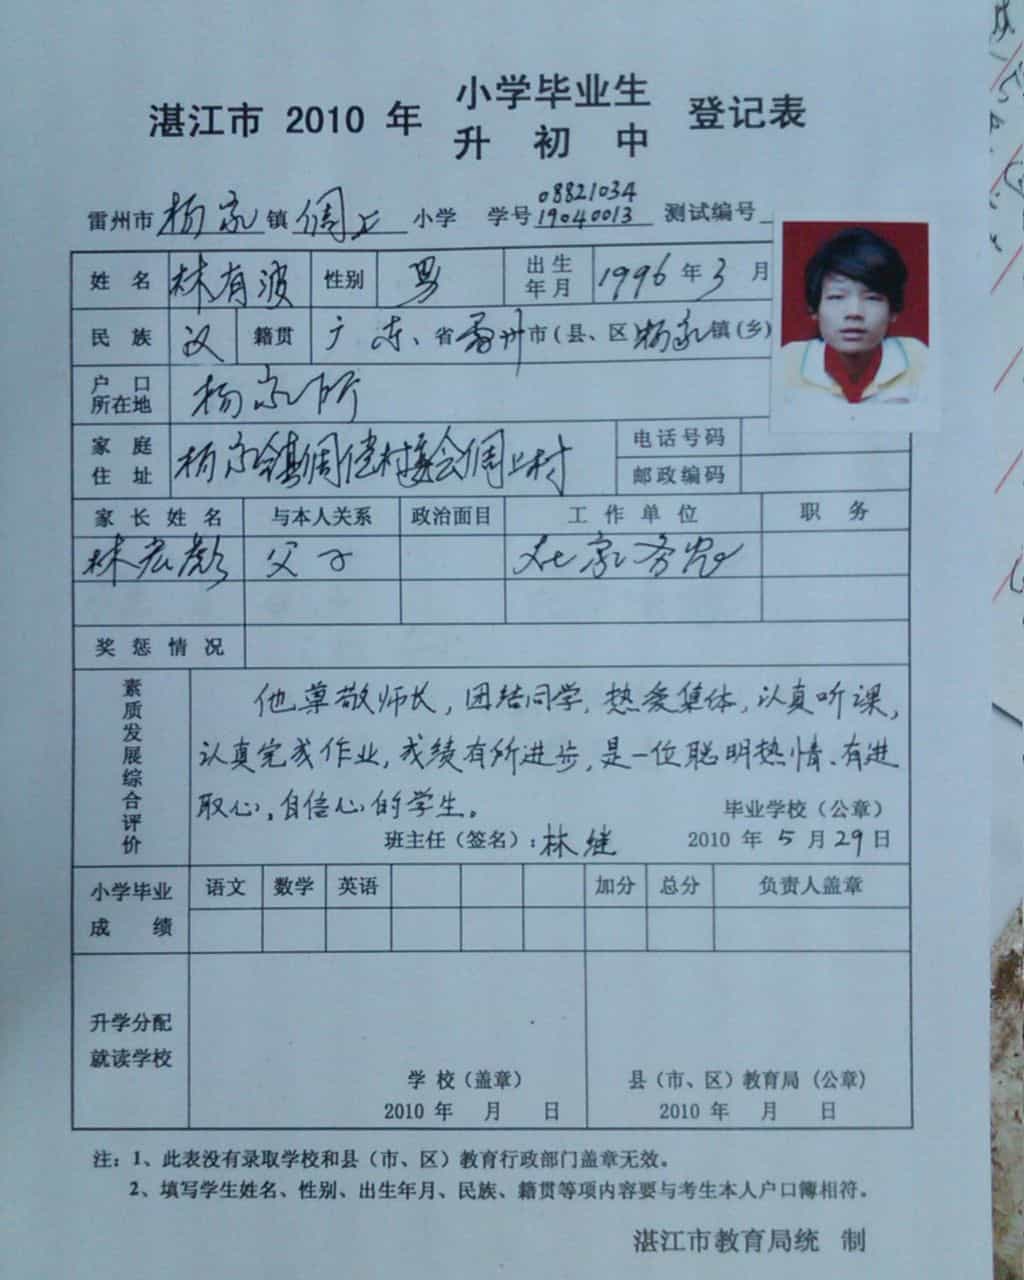 湛江市 2010 年 小学毕业生 升初中 登记表
08821034
雷州市杨家镇倜上小学 学号19040013 测试编号
姓名 林有波 性别 男 出生年月 1996年3月
民族 汉 籍贯 广东、省雷州市(县、区)杨家镇(乡)
户口所在地 杨家所
家庭住址 杨家镇 村委会 上村 电话号码
邮政编码
家长姓名 与本人关系 政治面目 工作单位 职务
林宏 父子 在家务农
奖惩情况
素质发展综合评价
他尊敬师长,团结同学,热爱集体,认真听课,
认真完成作业,成绩有所进步,是一位聪明热情、有进
取心,自信心的学生。
毕业学校(公章)
班主任(签名):林继 2010 年 5 月 29 日
小学毕业成绩 语文 数学 英语 加分 总分 负责人盖章
升学分配就读学校
学校(盖章) 县(市、区)教育局(公章)
2010 年 月 日 2010 年 月 日
注:1、此表没有录取学校和县(市、区)教育行政部门盖章无效。
2、填写学生姓名、性别、出生年月、民族、籍贯等项内容要与考生本人户口簿相符。
湛江市教育局统 制